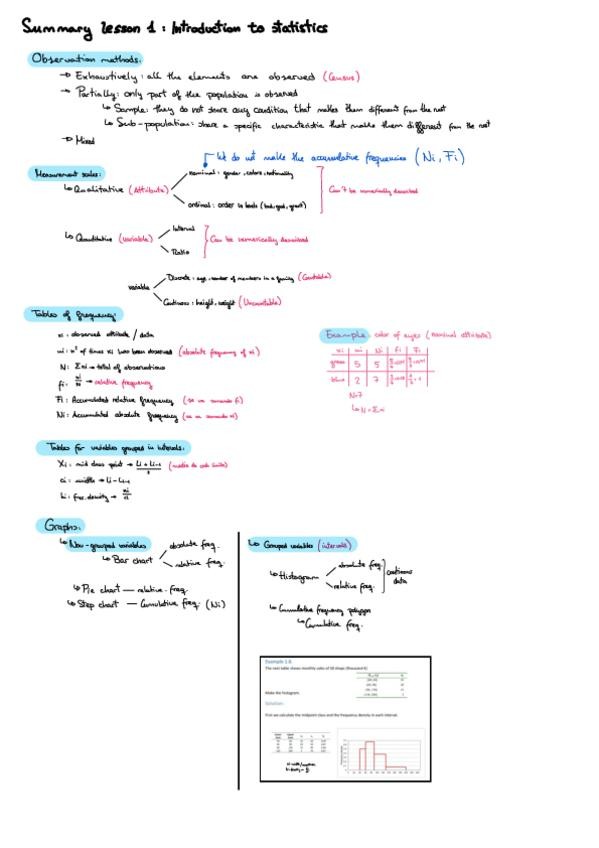 Summary lesson 1: Introduction to statistics
Observation methods:
→ Exhaustively: all the elements are observed (Census)
→ Partially: only part of the population is observed
↳ Sample: they do not share any condition that makes them different from the rest
↳ Sub-population: share a specific characteristic that make them different from the rest
→ Mixed
We do not make the accumulative frequencies (Ni, Fi)
Measurement scales:
↳ Qualitative (Attribute)
nominal: gender, colors, nationality
ordinal: order in levels (bad, good, great)
Can't be numerically
↳ Quantitative (variable)
Interval
Ratio
Can be numerically
variable
Discrete: age, number of members in a family (Countable)
Continous: height, weight (Uncountable)
Tables of frequency:
xi: observed attribute / data
ni: nº of times xi has been observed (absolute frequency of xi)
N: Σni → total of observations
fi: ni/N → relative frequency
Fi: Accumulated relative frequency (se va sumando fi)
Ni: Accumulated absolute frequency (se va sumando ni)
Example: color of eyes (nominal attribute)
xi ni Ni fi Fi
green 5 5
blue 2 7
N=7
↳ N=Σni
Tables for variables grouped in intervals:
Xi: mid class point → Li + Li-1 / 2
ci: width → Li - Li-1
hi: frec. density → ni/ci
Graphs:
↳ Non-grouped variables
↳ Bar chart
absolute freq.
relative freq.
↳ Pie chart — relative freq.
↳ Step chart — Cumulative freq. (Ni)
↳ Grouped variables (intervals)
↳ Histogram
absolute freq.
relative freq.
continous
data
↳ Cumulative frequency polygon
↳ Cumulative freq.
Example 1.6
The next table shows monthly sales of 50 shops (thousand €)
Make the histogram.
Solution:
First we calculate the midpoint class and the frequency density in each interval.